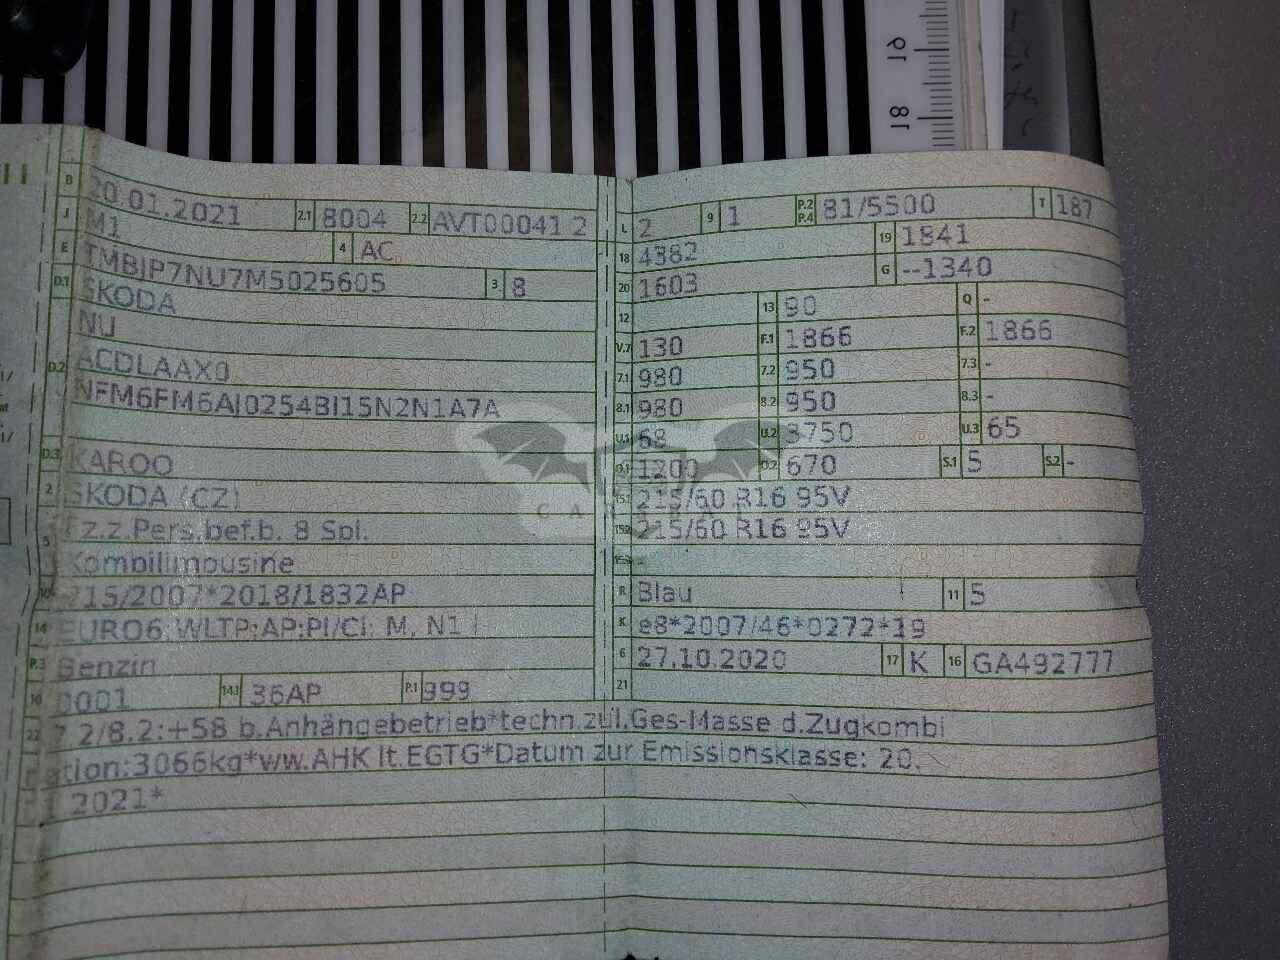 16
18
B 20.01.2021 2.1 8004 2.2 AVT00041 2
J M1 4 AC
E TMBJP7NU7M5025605 3 8
D.1 SKODA
NU
D.2 ACDLAAX0
NFM6FM6AJ0254BI15N2N1A7A
D.3 KAROQ
2 SKODA (CZ)
Fz.z.Pers.bef.b. 8 Spl.
5 Kombilimousine
715/2007*2018/1832AP
14 EURO6;WLTP;AP;PI/CI; M, N1 I
P.3 Benzin
10 0001 14.1 36AP P.1 999
L 2 9 1 P.2 P.4 81/5500 T 187
18 4382 19 1841
20 1603 G --1340
12 13 90 Q -
V.7 130 F.1 1866 F.2 1866
7.1 980 7.2 950 7.3 -
8.1 980 8.2 950 8.3 -
U.1 68 U.2 3750 U.3 65
O.1 1200 O.2 670 S.1 5 S.2 -
15.1 215/60 R16 95V
15.2 215/60 R16 95V
15.3 -
R Blau 11 5
K e8*2007/46*0272*19
6 27.10.2020 17 K 16 GA492777
21
22 7.2/8.2:+58 b.Anhängebetrieb*techn.zul.Ges-Masse d.Zugkombi
ation:3066kg*ww.AHK lt.EGTG*Datum zur Emissionsklasse: 20.
2021*